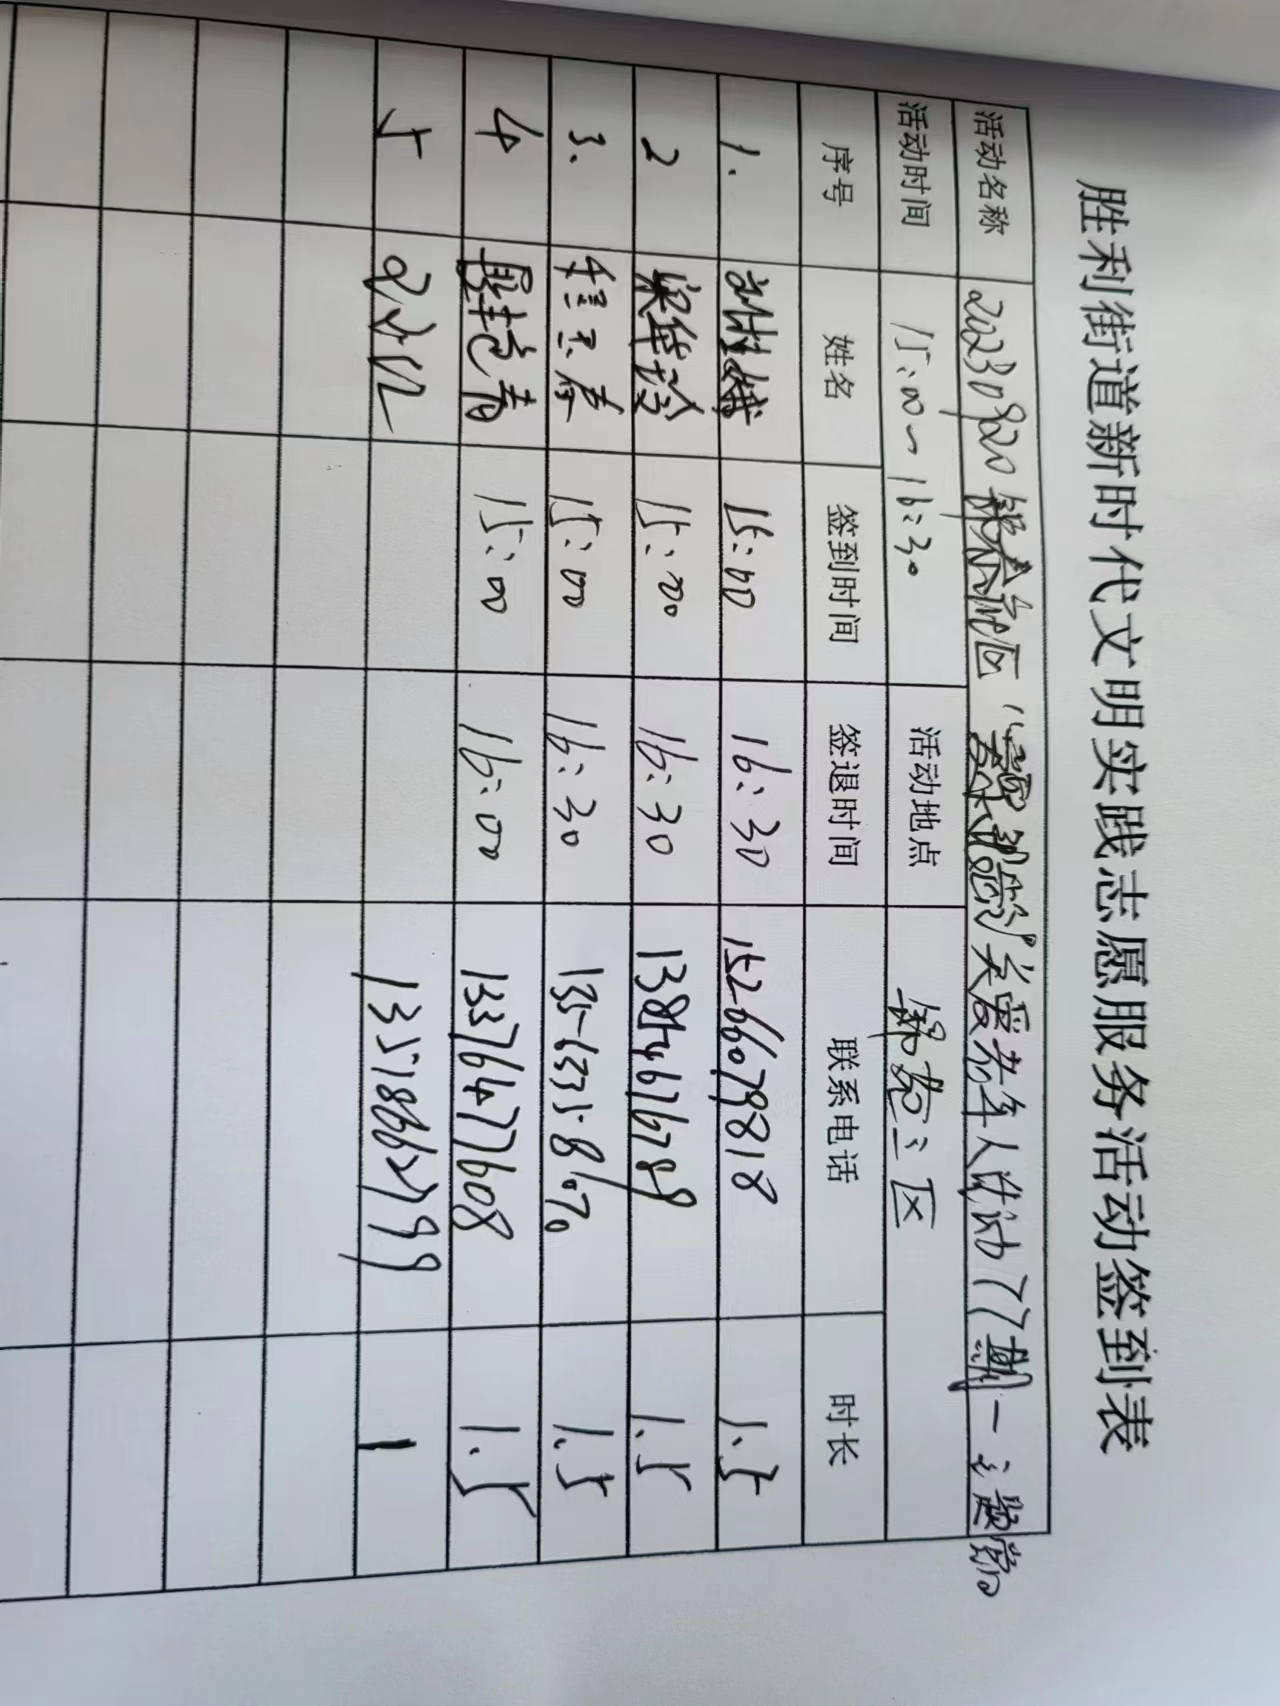 胜利街道新时代文明实践志愿服务活动签到表
活动名称 20230920 锦苑社区 关爱老年人活动77期一主题党日
活动时间 15:00~16:30 活动地点 锦苑三区
序号 姓名 签到时间 签退时间 联系电话 时长
1. 15:00 16:30 15266079818 1.5
2 梁华玲 15:00 16:30 13854667689 1.5
3. 程玉春 15:00 16:30 1.5
4 15:00 16:00 13376477608 1.5
5 13518662799 1